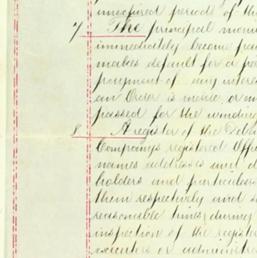 unexpired periods of the
7 The principal mone
immediately become pay
makes default for a per
payment of any interes
an Order is made, or an
passed for the winding
8 A register of the Debe
Company's registered Offi
names addresses and d
holders and particulars
them respectively and s
reasonable times during
inspection of the regist
executors or administra